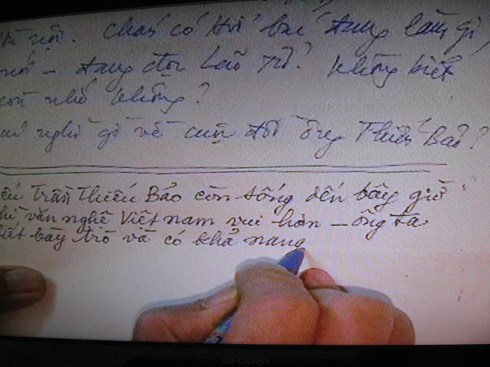 nội. Chắc có đang làm gì
nói - đang đọc báo Không biết
còn nhớ không?
nghĩ gì về cuộc đời ông Thiếu Bảo?
Trần Thiếu Bảo còn sống đến bây giờ
văn nghệ Việt nam vui hơn - ông ta
biết bày trò và có khả năng